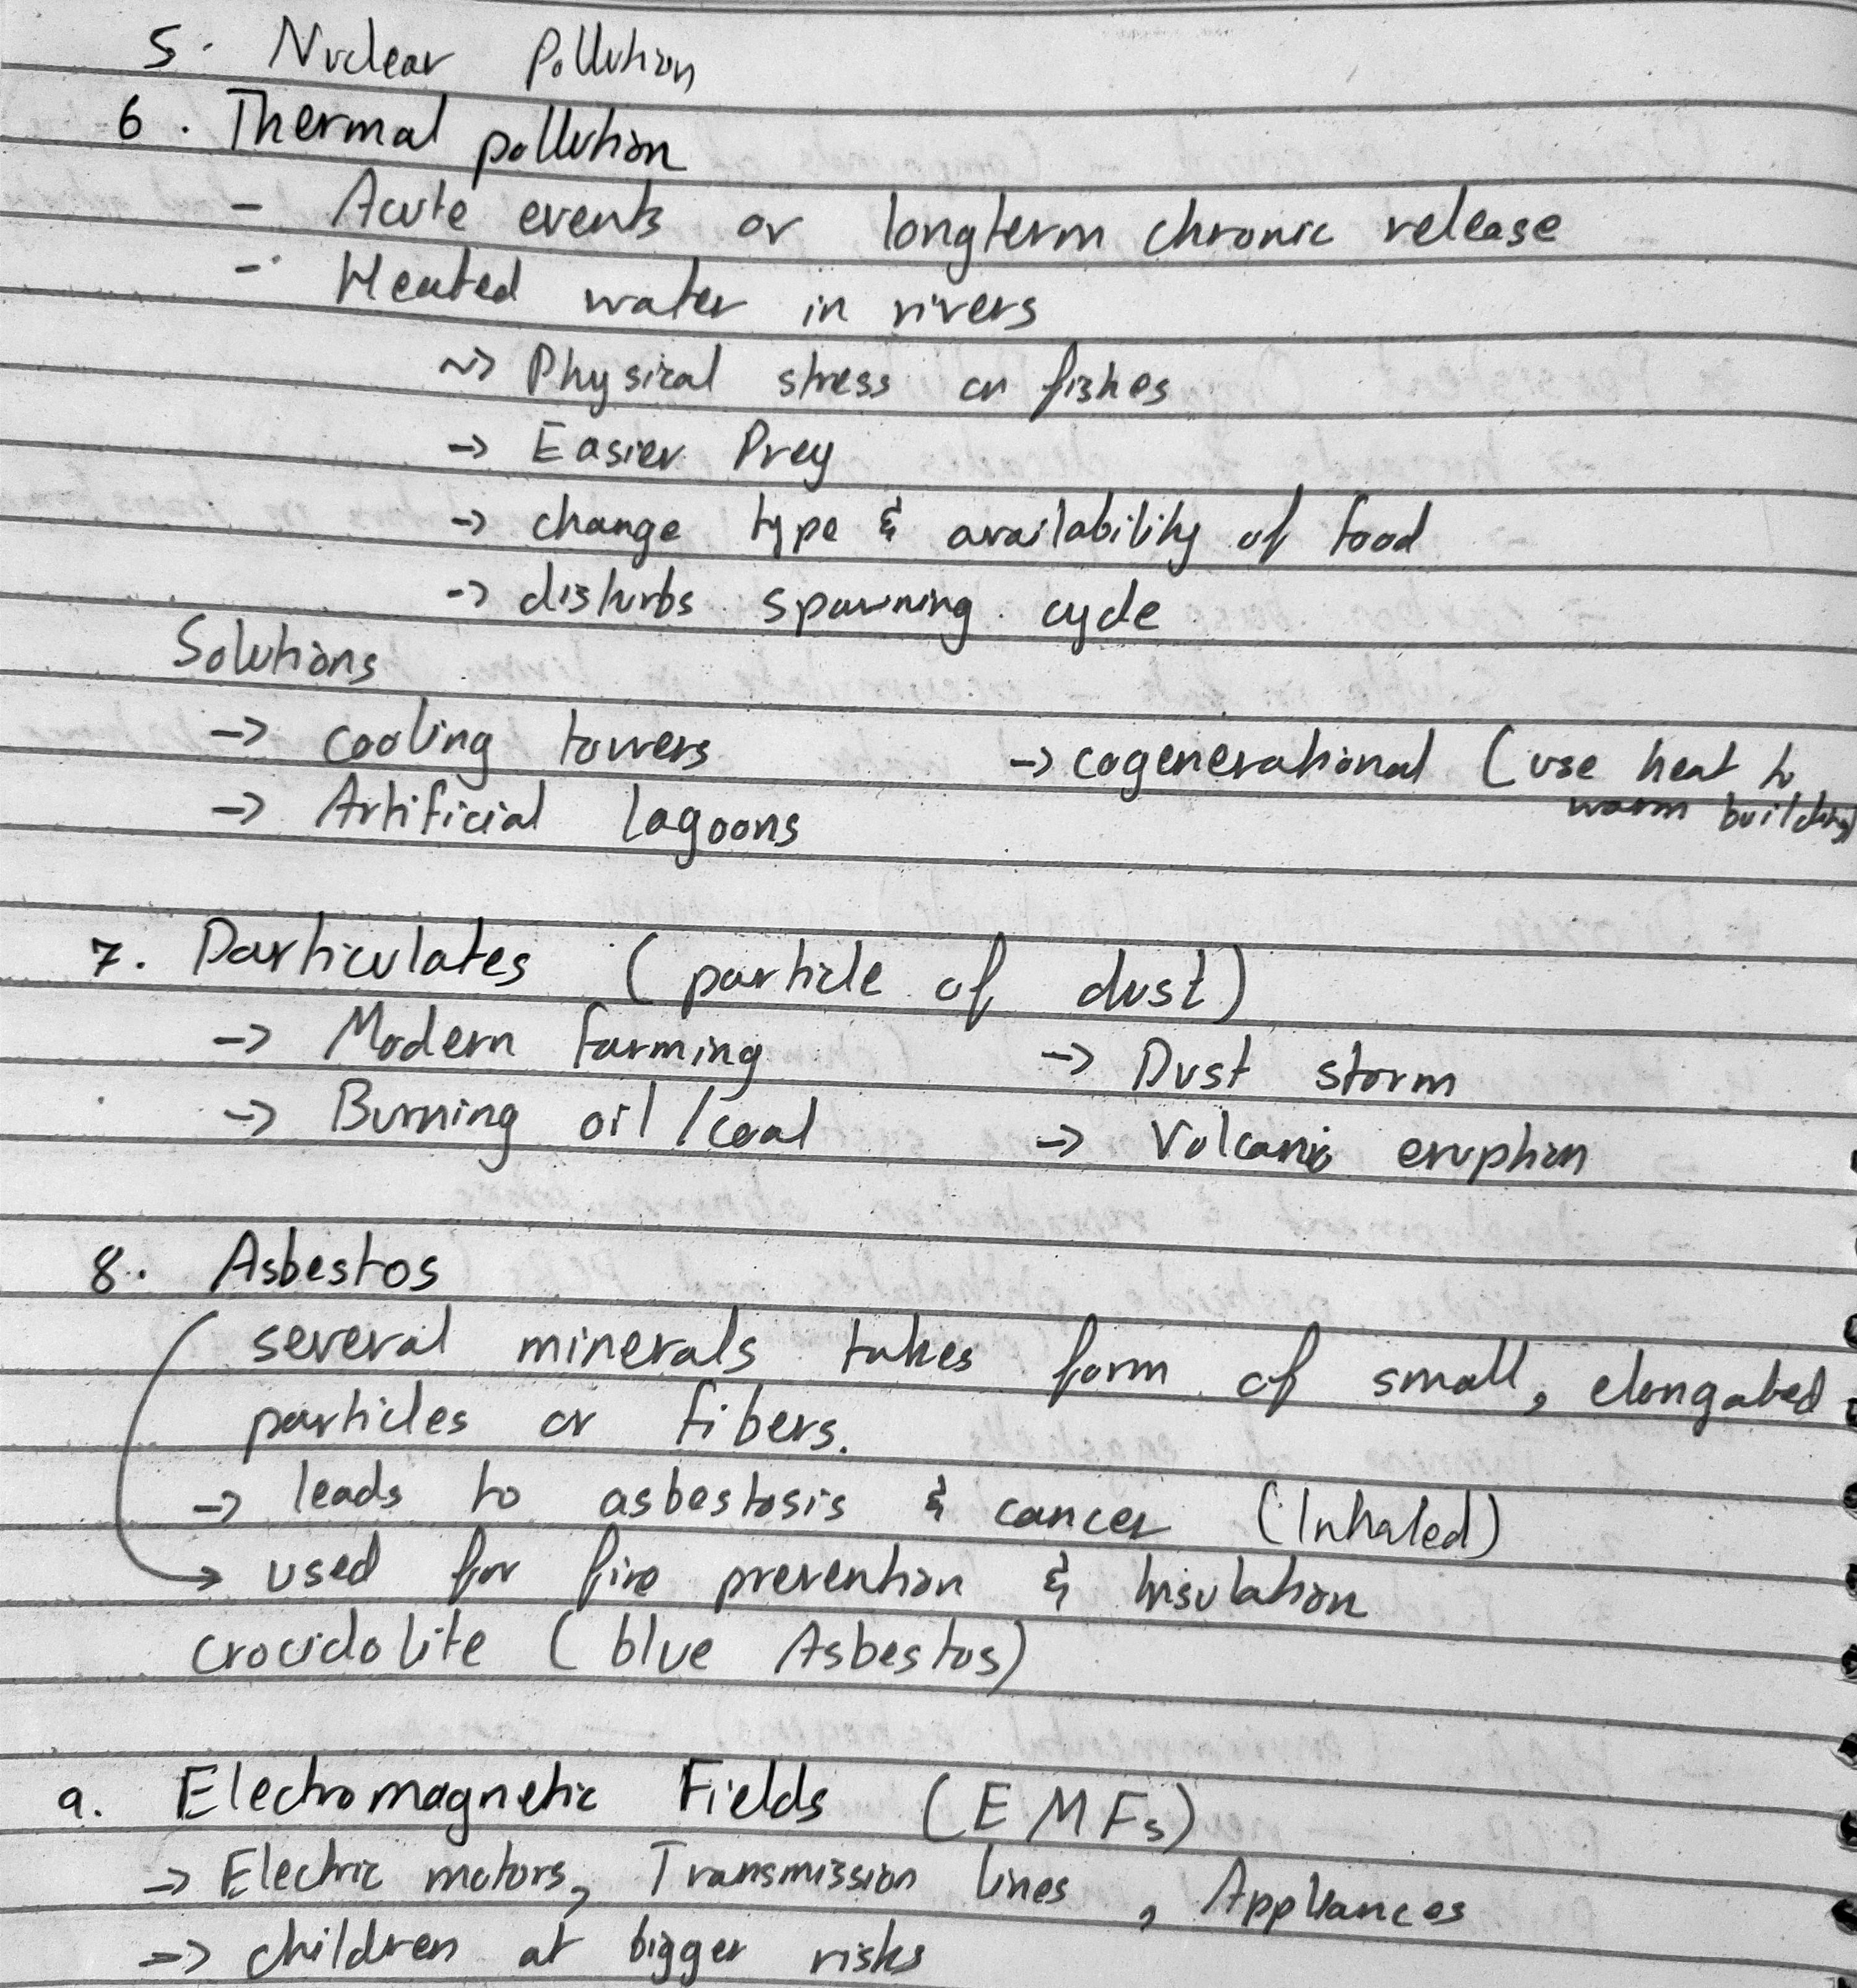 5. Nuclear Pollution
6. Thermal pollution
- Acute events or longterm chronic release
- Heated water in rivers
~> Physical stress on fishes
-> Easier Prey
-> change type & availability of food
-> disturbs spawning cycle
Solutions
-> cooling towers -> cogenerational (use heat to
warm building)
-> Artificial lagoons
7. Particulates (particle of dust)
-> Modern farming -> Dust storm
-> Burning oil/coal -> Volcanic eruption
8. Asbestos
several minerals takes form of small, elongated
particles or fibers.
-> leads to asbestosis & cancer (Inhaled)
-> used for fire prevention & Insulation
crocidolite (blue Asbestos)
9. Electromagnetic Fields (EMFs)
-> Electric motors, Transmission lines, Appliances
-> children at bigger risks